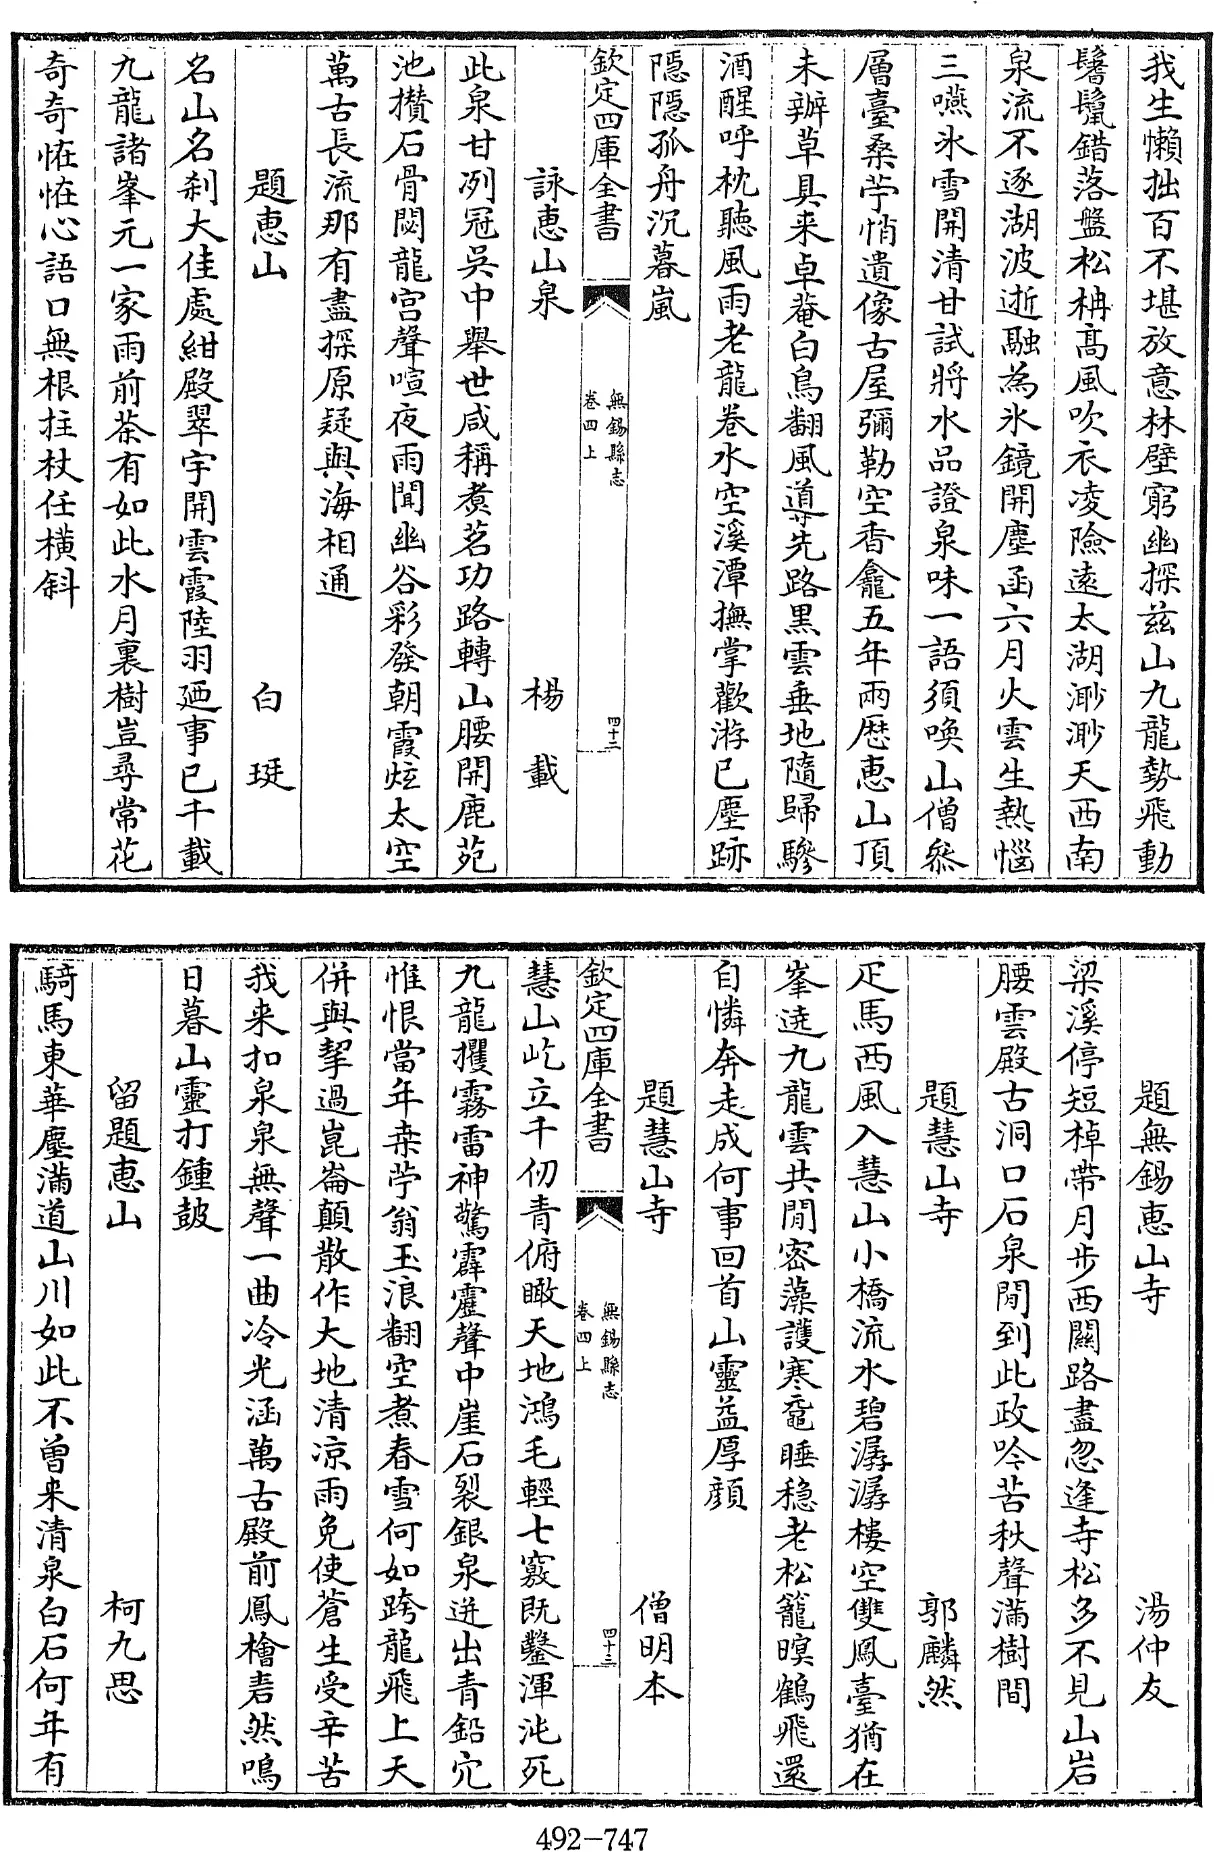 我生懶拙百不堪放意林壁窮幽探兹山九龍勢飛動
鬅鬙錯落盤松柟髙風吹衣凌險遠太湖渺渺天西南
泉流不逐湖波逝融為氷鏡開塵函六月火雲生熱惱
三嚥氷雪開清甘試將水品證泉味一語須喚山僧叅
層臺桑苧悄遺像古屋彌勒空香龕五年兩歴恵山頂
未辦草具来卓菴白鳥翻風導先路黒雲垂地隨歸驂
酒醒呼枕聽風雨老龍卷水空溪潭撫掌歡游已塵跡
隠隠孤舟沉暮嵐
欽定四庫全書
無錫縣志
卷四上
四十二
詠恵山泉
楊載
此泉甘冽冠吳中舉世咸稱煑茗功路轉山腰開鹿苑
池攅石骨閟龍宫聲喧夜雨聞幽谷彩發朝霞炫太空
萬古長流那有盡探原疑與海相通
題恵山
白珽
名山名刹大佳處紺殿翠宇開雲霞陸羽廼事已千載
九龍諸峯元一家雨前茶有如此水月裏樹豈尋常花
奇奇恠恠心語口無根拄杖任橫斜
題無錫恵山寺
湯仲友
梁溪停短棹帶月步西關路盡忽逢寺松多不見山岩
腰雲殿古洞口石泉閒到此政吟苦秋聲滿樹間
題慧山寺
郭麟然
疋馬西風入慧山小橋流水碧潺潺樓空雙鳳臺猶在
峯遶九龍雲共閒密藻護寒黿睡穏老松籠暝鶴飛還
自憐奔走成何事回首山靈益厚顔
題慧山寺
僧明本
欽定四庫全書
無錫縣志
卷四上
四十三
慧山屹立千仞青俯瞰天地鴻毛輕七竅既鑿渾沌死
九龍攫霧雷神驚霹靂聲中崖石裂銀泉迸出青鉛穴
惟恨當年桒苧翁玉浪翻空煮春雪何如跨龍飛上天
併與挈過崑崙顛散作大地清凉雨免使蒼生受辛苦
我来扣泉泉無聲一曲冷光涵萬古殿前鳳檜砉然鳴
日暮山靈打鍾皷
留題恵山
柯九思
騎馬東華塵滿道山川如此不曾来清泉白石何年有
492-747